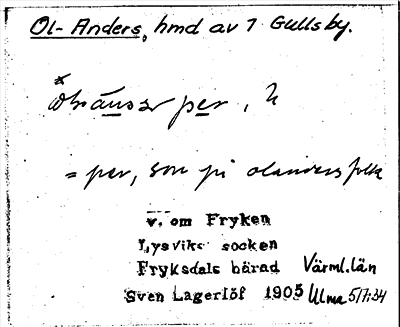 Ol-Anders, hmd av 7 Gullsby.
per,
= per, son på olanders folk
v. om Fryken
Lysviks socken
Fryksdals härad Värml. län
Sven Lagerlöf 1905 Ulma 5/7.34